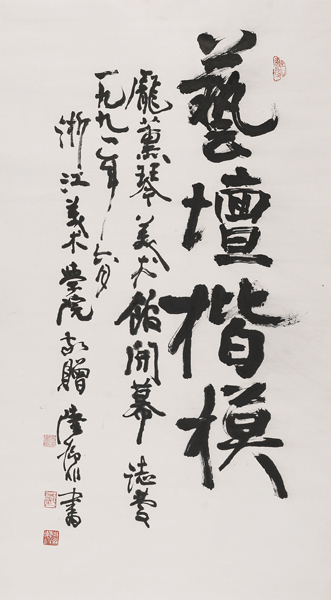 藝壇楷模
龐薰琹美术館開幕誌慶
一九九一年六月
浙江美术學院敬贈 陸儼少書